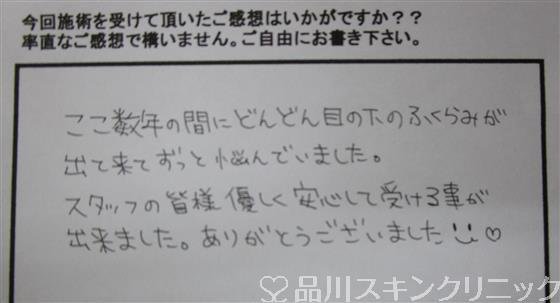 今回施術を受けて頂いたご感想はいかがですか??
率直なご感想で構いません。ご自由にお書き下さい。
ここ数年の間にどんどん目の下のふくらみが
出て来てずっと悩んでいました。
スタッフの皆様優しく安心して受ける事が
出来ました。ありがとうございました
品川スキンクリニック